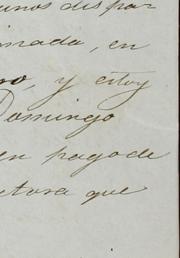 unos dispa-
imada, en
no, y estoy
Domingo
en pago de
ctora que